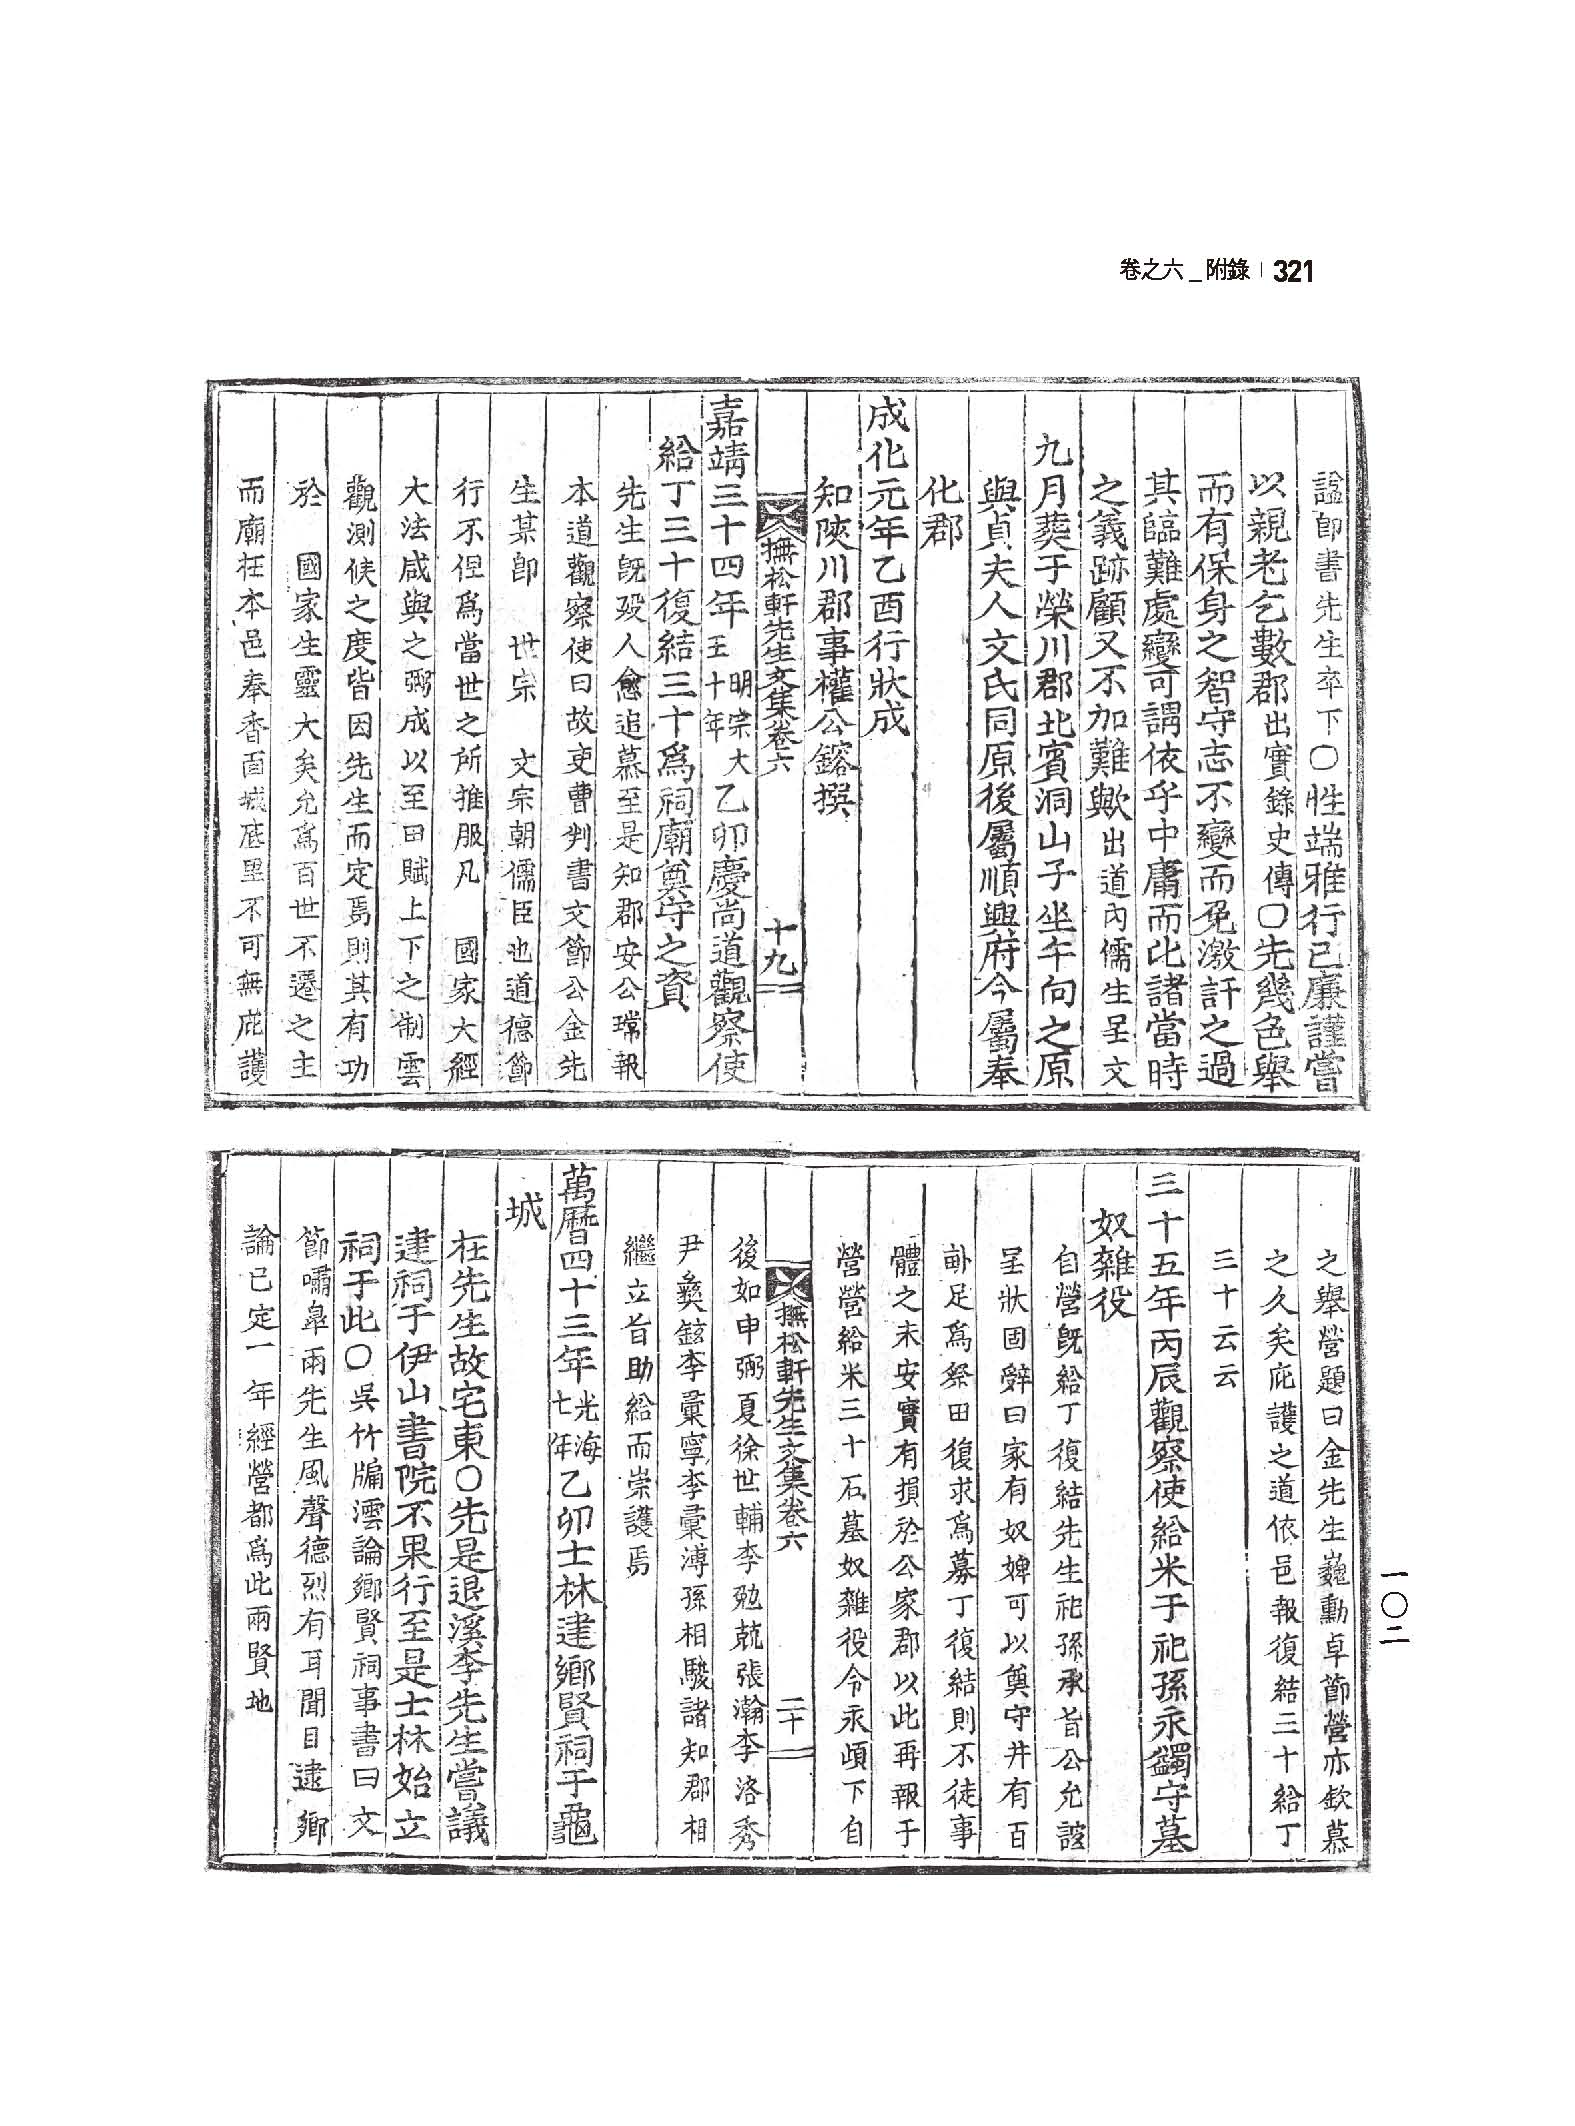 卷之六_附錄 | 321
諡卽書先生卒下○性端雅行已廉謹嘗
以親老乞數郡出實錄史傳○先幾色舉
而有保身之智守志不變而免激訐之過
其臨難處變可謂依乎中庸而比諸當時
之義跡顧又不加難歟出道內儒生呈文
九月葬于榮川郡北賓洞山子坐午向之原
與貞夫人文氏同原後屬順興府今屬奉
化郡
成化元年乙酉行狀成
知陜川郡事權公鎔撰
撫松軒先生文集卷六 十九
嘉靖三十四年明宗大王十年乙卯慶尚道觀察使
給丁三十復結三十爲祠廟奠守之資
先生旣歿人愈追慕至是知郡安公瑺報
本道觀察使曰故吏曹判書文節公金先
生某卽 世宗 文宗朝儒臣也道德節
行不但爲當世之所推服凡 國家大經
大法咸與之弼成以至田賦上下之制雲
觀測候之度皆因先生而定焉則其有功
於 國家生靈大矣允爲百世不遷之主
而廟在本邑奉香面城底里不可無庇護
之擧營題曰金先生巍勳卓節營亦欽慕
之久矣庇護之道依邑報復結三十給丁
三十云云
三十五年丙辰觀察使給米于祀孫永蠲守墓
奴雜役
自營旣給丁復結先生祀孫承旨公允諠
呈狀固辭曰家有奴婢可以奠守井有百
畝足爲祭田復求爲募丁復結則不徒事
體之未安實有損於公家郡以此再報于
營營給米三十石墓奴雜役令永頉下自
撫松軒先生文集卷六 二十
後如申弼夏徐世輔李勉兢張瀚李洛秀
尹彜鉉李彙寧李彙溥孫相駿諸知郡相
繼立旨助給而崇護焉
萬曆四十三年光海七年乙卯士林建鄕賢祠于龜
城
在先生故宅東○先是退溪李先生嘗議
建祠于伊山書院不果行至是士林始立
祠于此○吳竹牖澐論鄕賢祠事書曰文
節嘯皐兩先生風聲德烈有耳聞目逮鄕
論已定一年經營都爲此兩賢地
一〇二